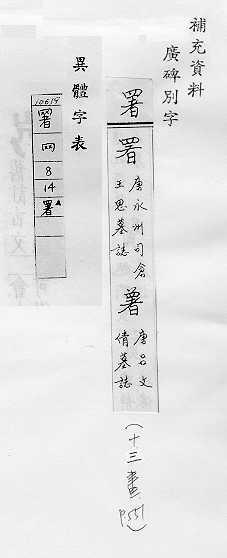 補充資料
廣碑別字
署
署 唐永州司倉王思墓誌
署 唐呂文倩墓誌
(十三畫 P.551)
異體字表
10619
署
网
8
14
署▲